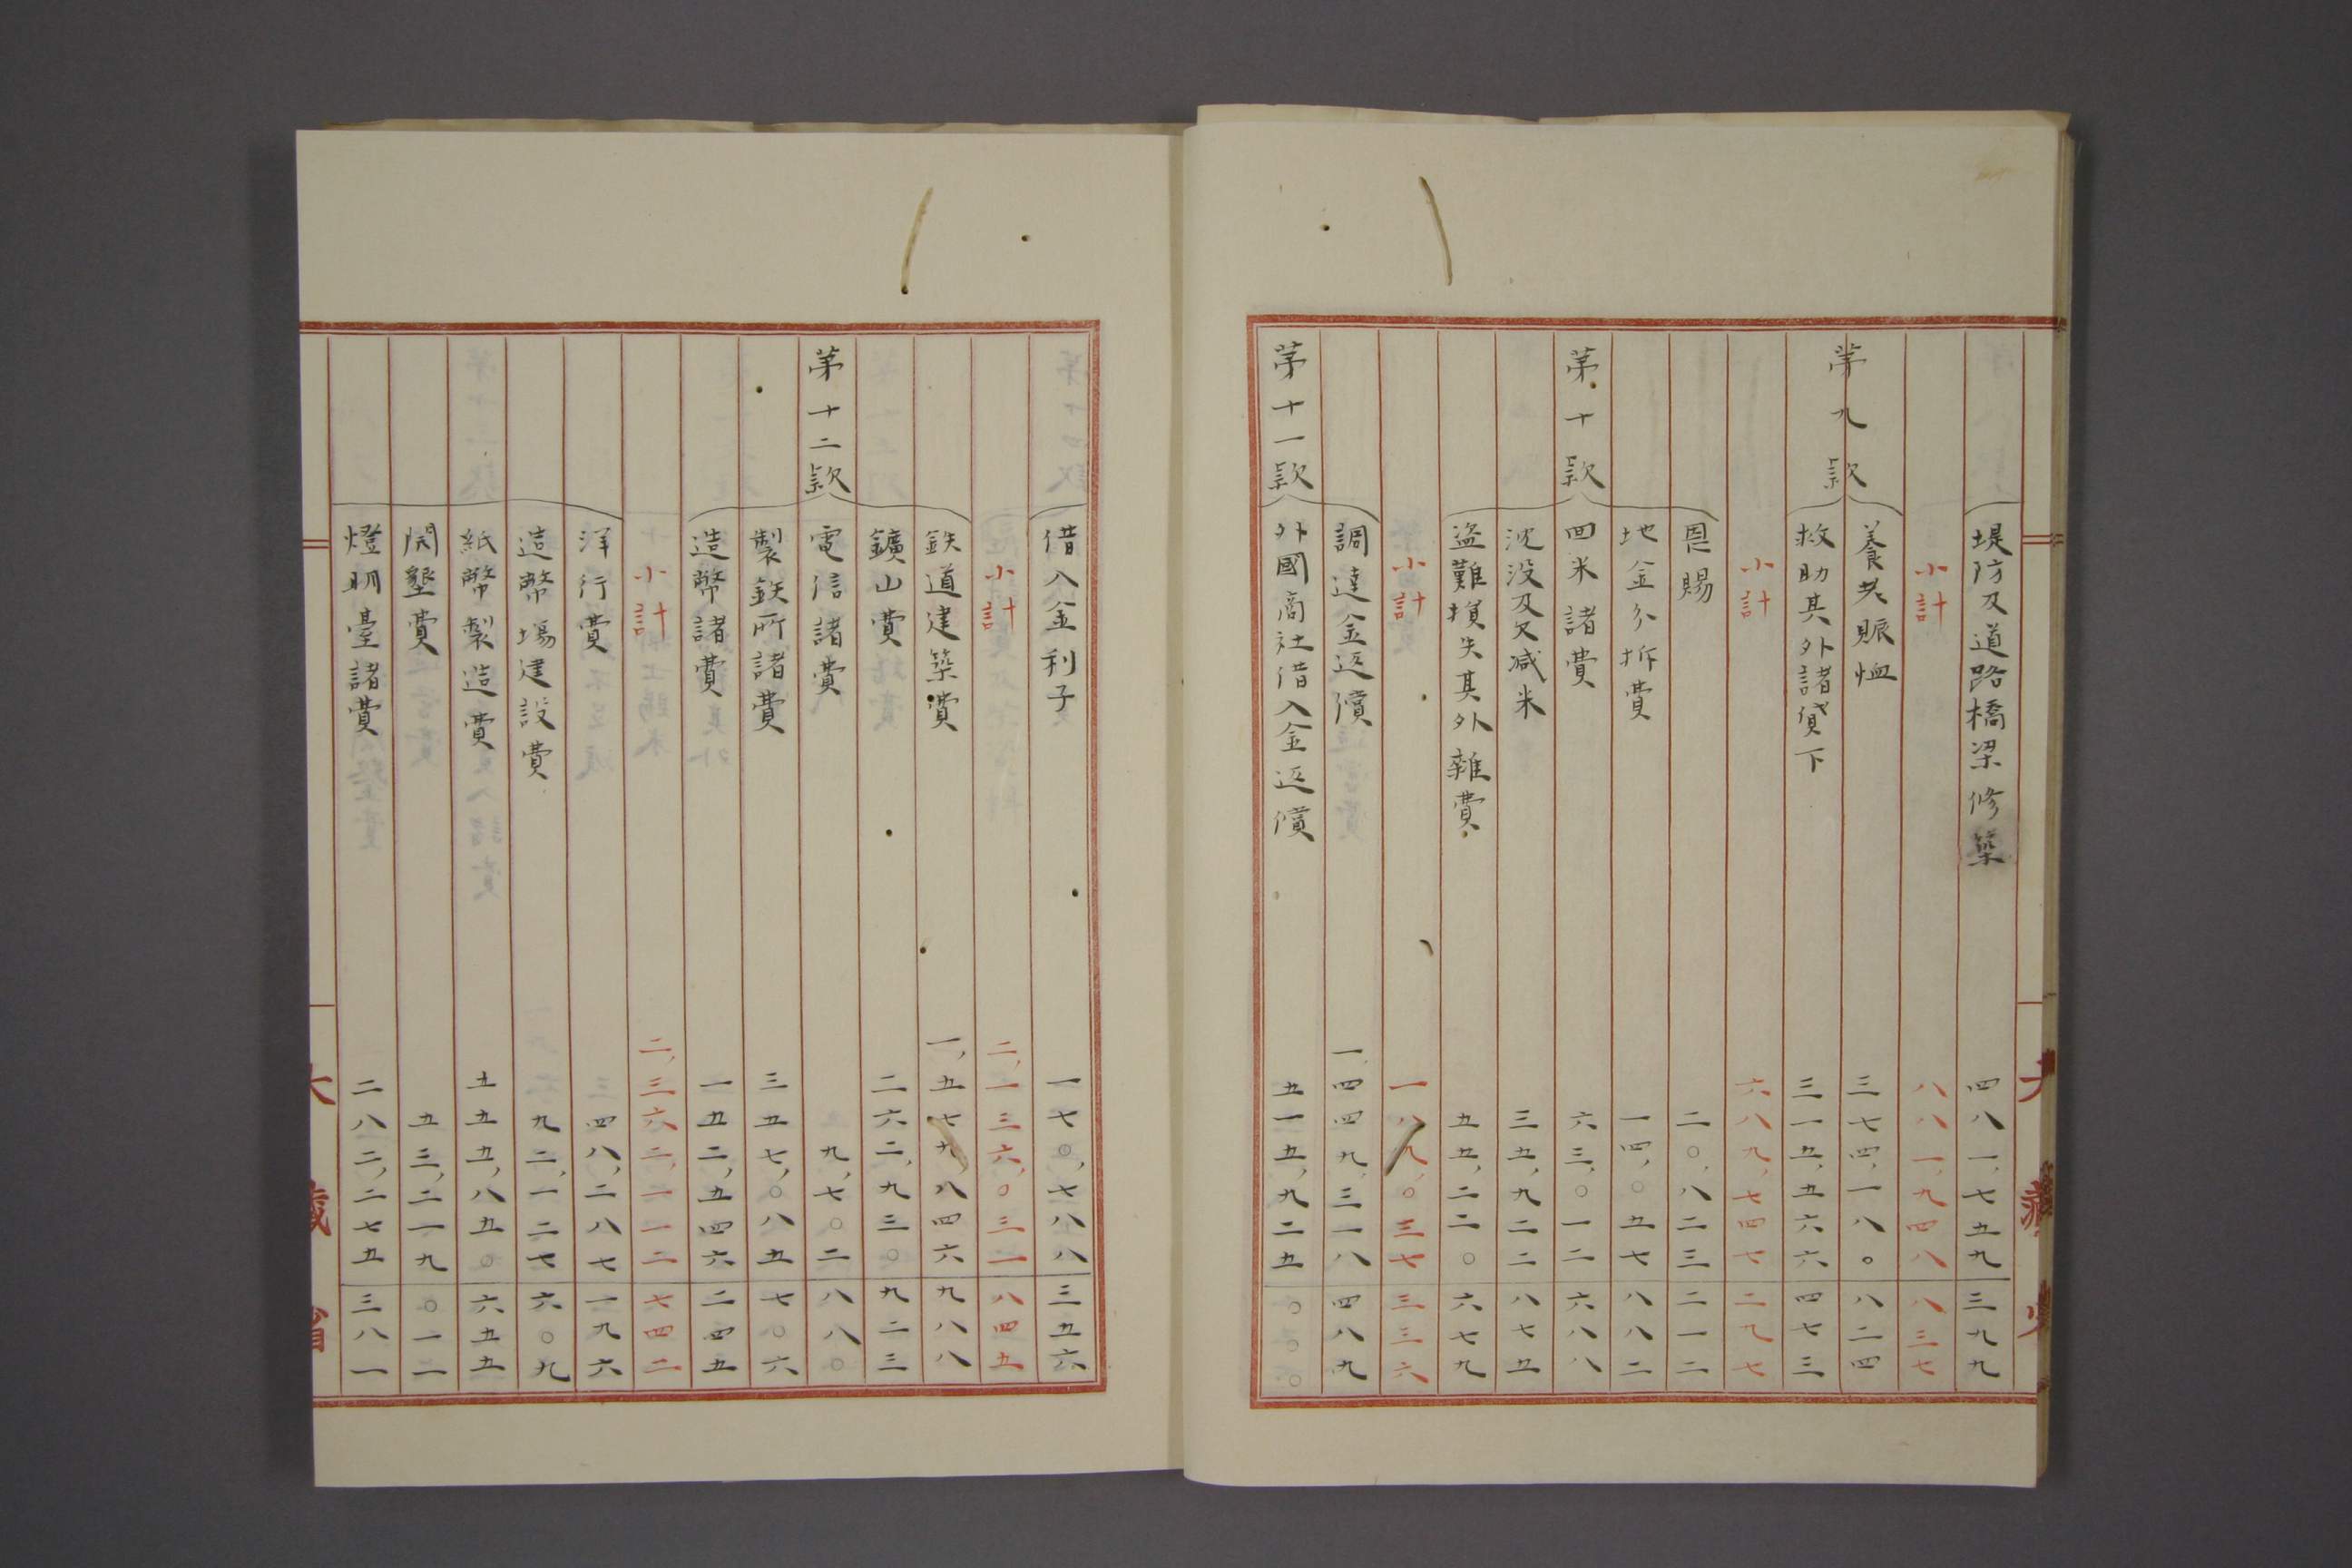 堤防及道路橋梁修築 四八一,七五九 三九九
小計 八八一,九四八 八三七
第九款
養老賑恤 三七四,一八〇 八二四
救助其外諸貸下 三一五,五六六 四七三
小計 六八九,七四七 二九七
恩賜 二〇,八二三 二一二
地金分拆費 一四,〇五七 八八二
第十款 回米諸費 六三,〇一二 六八八
沈没及欠減米 三五,九二二 八七五
盗難損失其外雜費 五五,二二〇 六七九
小計 一八九,〇三七 三三六
調達金返償 一,四四九,三一八 四八九
第十一款 外國商社借入金返償 五一五,九二五 〇〇〇
借入金利子 一七〇,七八八 三五六
小計 二,一三六,〇三一 八四五
鉄道建築費 一,五七九,八四六 九八八
鑛山費 二六二,九三〇 九二三
第十二款 電信諸費 九,七〇二 八八〇
製鉄所諸費 三五七,〇八五 七〇六
造幣諸費 一五二,五四六 二四五
小計 二,三六二,一一二 七四二
洋行費 四八,二八七 一九六
造幣場建設費 九二,一二七 六〇九
紙幣製造費 五五五,八五〇 六五五
開墾費 五三,二一九 〇一二
燈明臺諸費 二八二,二七五 三八一
大藏省